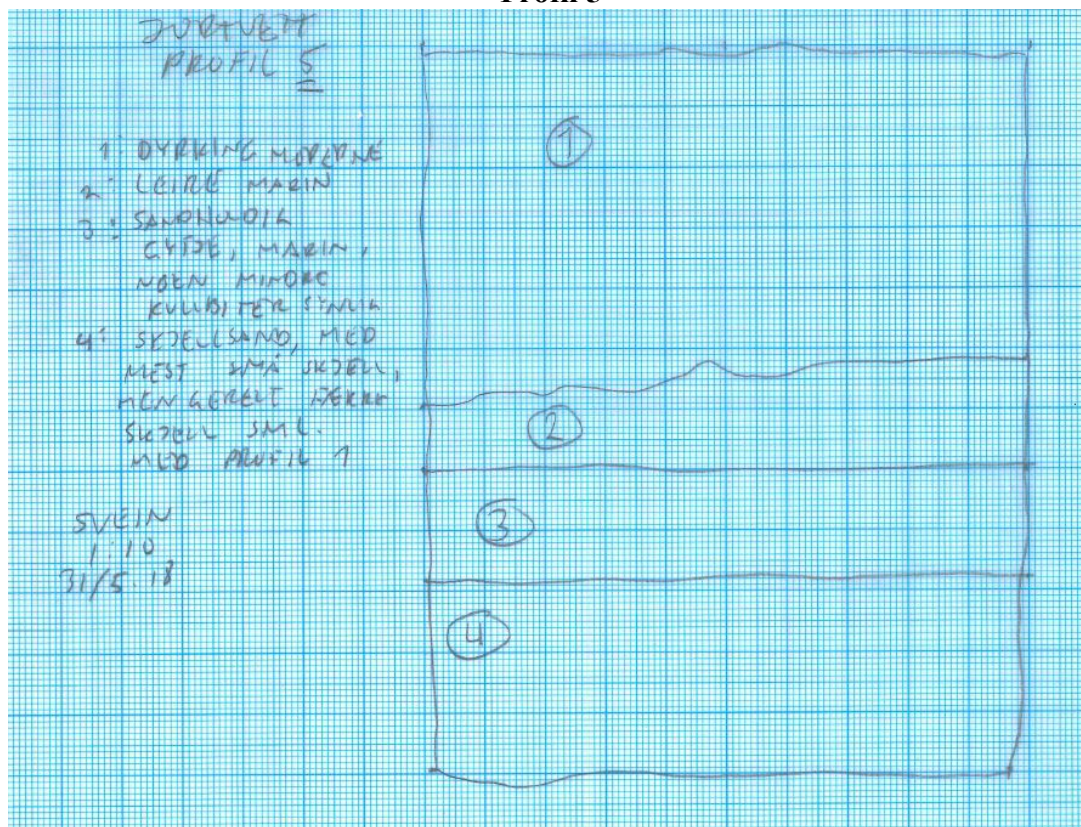 Profil 5
JORTVEIT
PROFIL 5
1: DYRKING MODERNE
2: LEIRE MARIN
3: SANDHOLDIG
GYTJE, MARIN,
NOEN MINDRE
KULLBITER SYNLIG
4: SKJELLSAND, MED
MEST SMÅ SKJELL,
MEN GERELT FÆRRE
SKJELL SML.
MED PROFIL 1
SVEIN
1:10
31/5.18
1
2
3
4